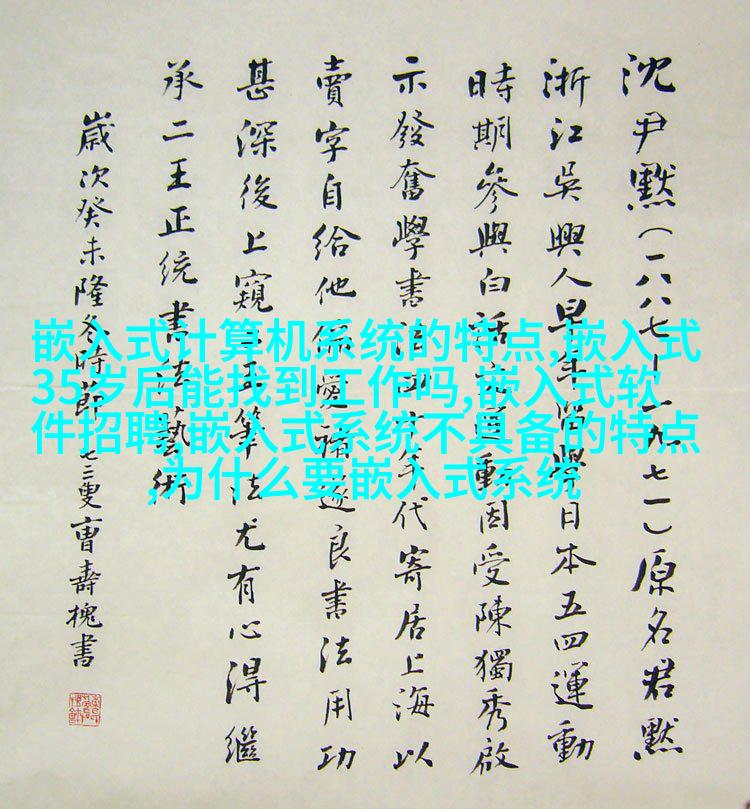 沈尹默(一八八七—一九七一)原名君默
浙江吳興人早年留學日本五四運動
時期參與白話運動因受陳獨秀啟
示發奮學書四年代寄居上海以
賣字自給他愛遂良書法用功
甚深後上窺王筆法尤有心得繼
承二王正统書法藝術
歲次癸未隆冬時節七二叟曹壽槐書
嵌入式计算机系统的特点,嵌入式
35岁后能找到工作吗,嵌入式软
件招聘,嵌入式系统不具备的特点
,为什么要嵌入式系统